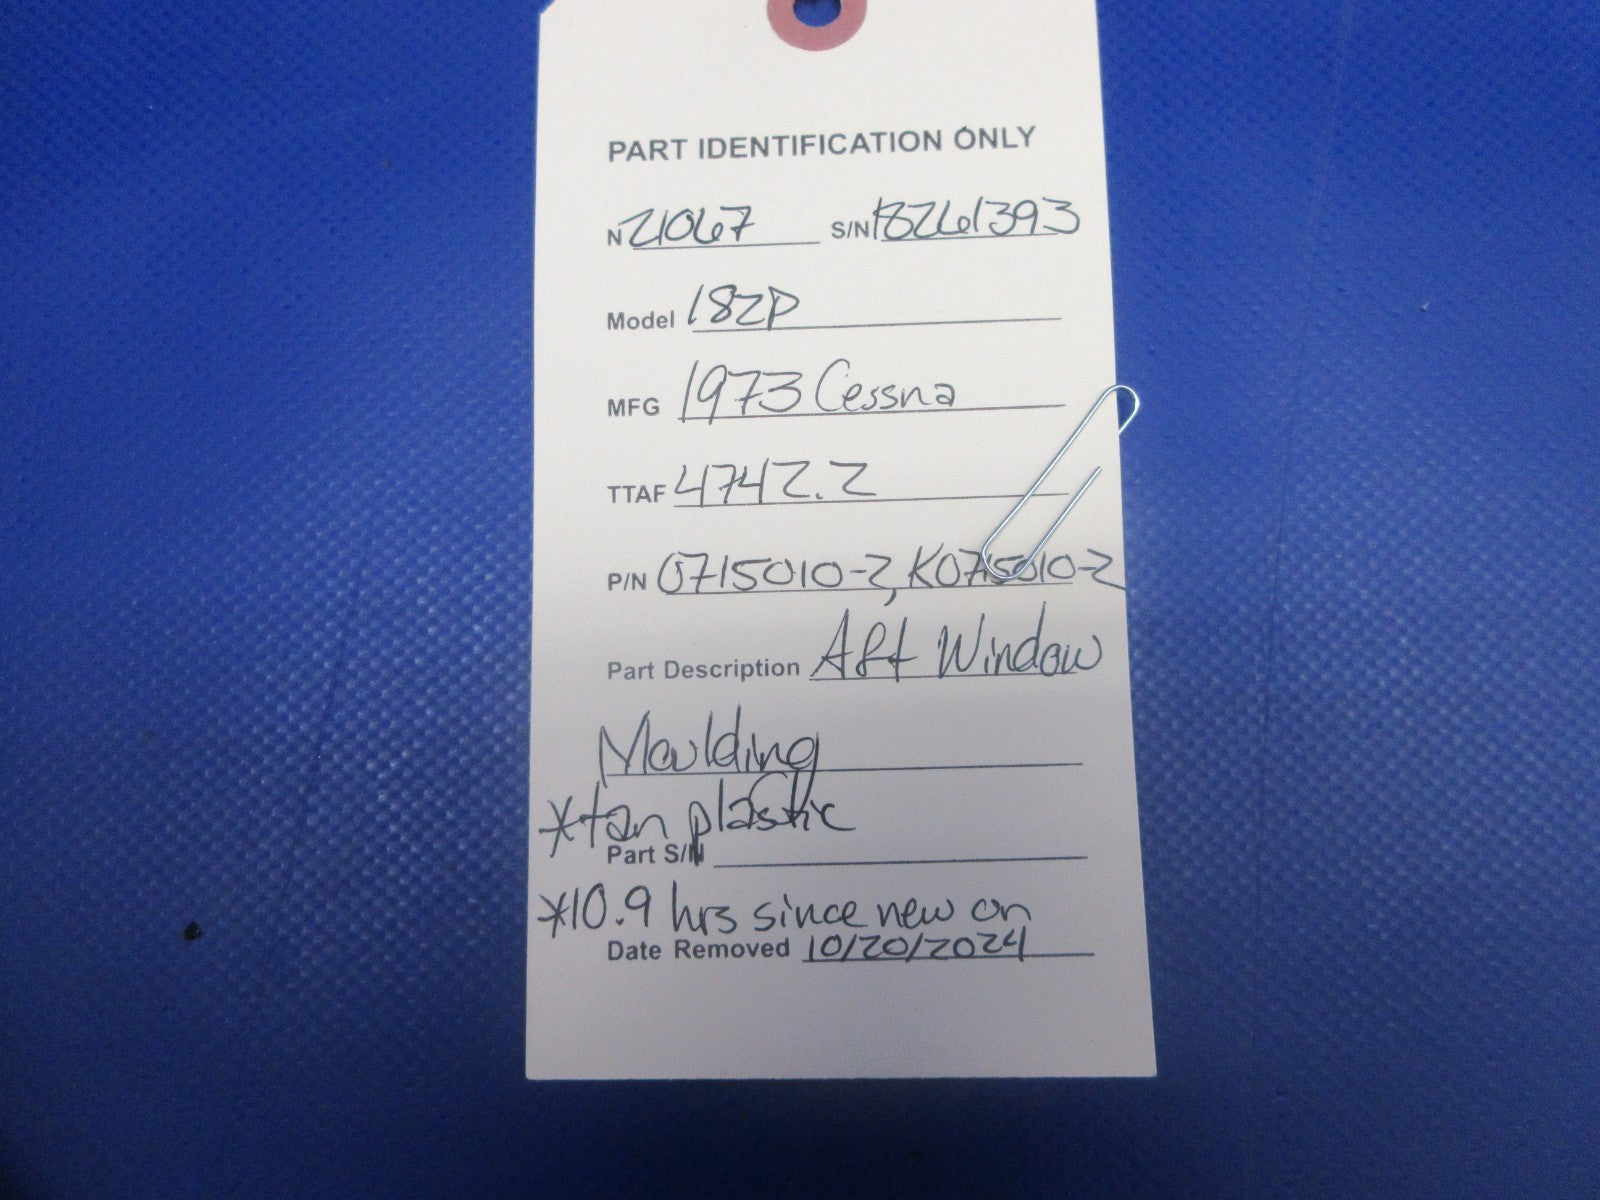 PART IDENTIFICATION ONLY
N 21067 S/N 18261393
Model 182P
MFG 1973 Cessna
TTAF 4742.2
P/N 0715010-2, K0715010-2
Part Description Aft Window
Moulding
*tan plastic
Part S/N
*10.9 hrs since new on
Date Removed 10/20/2024